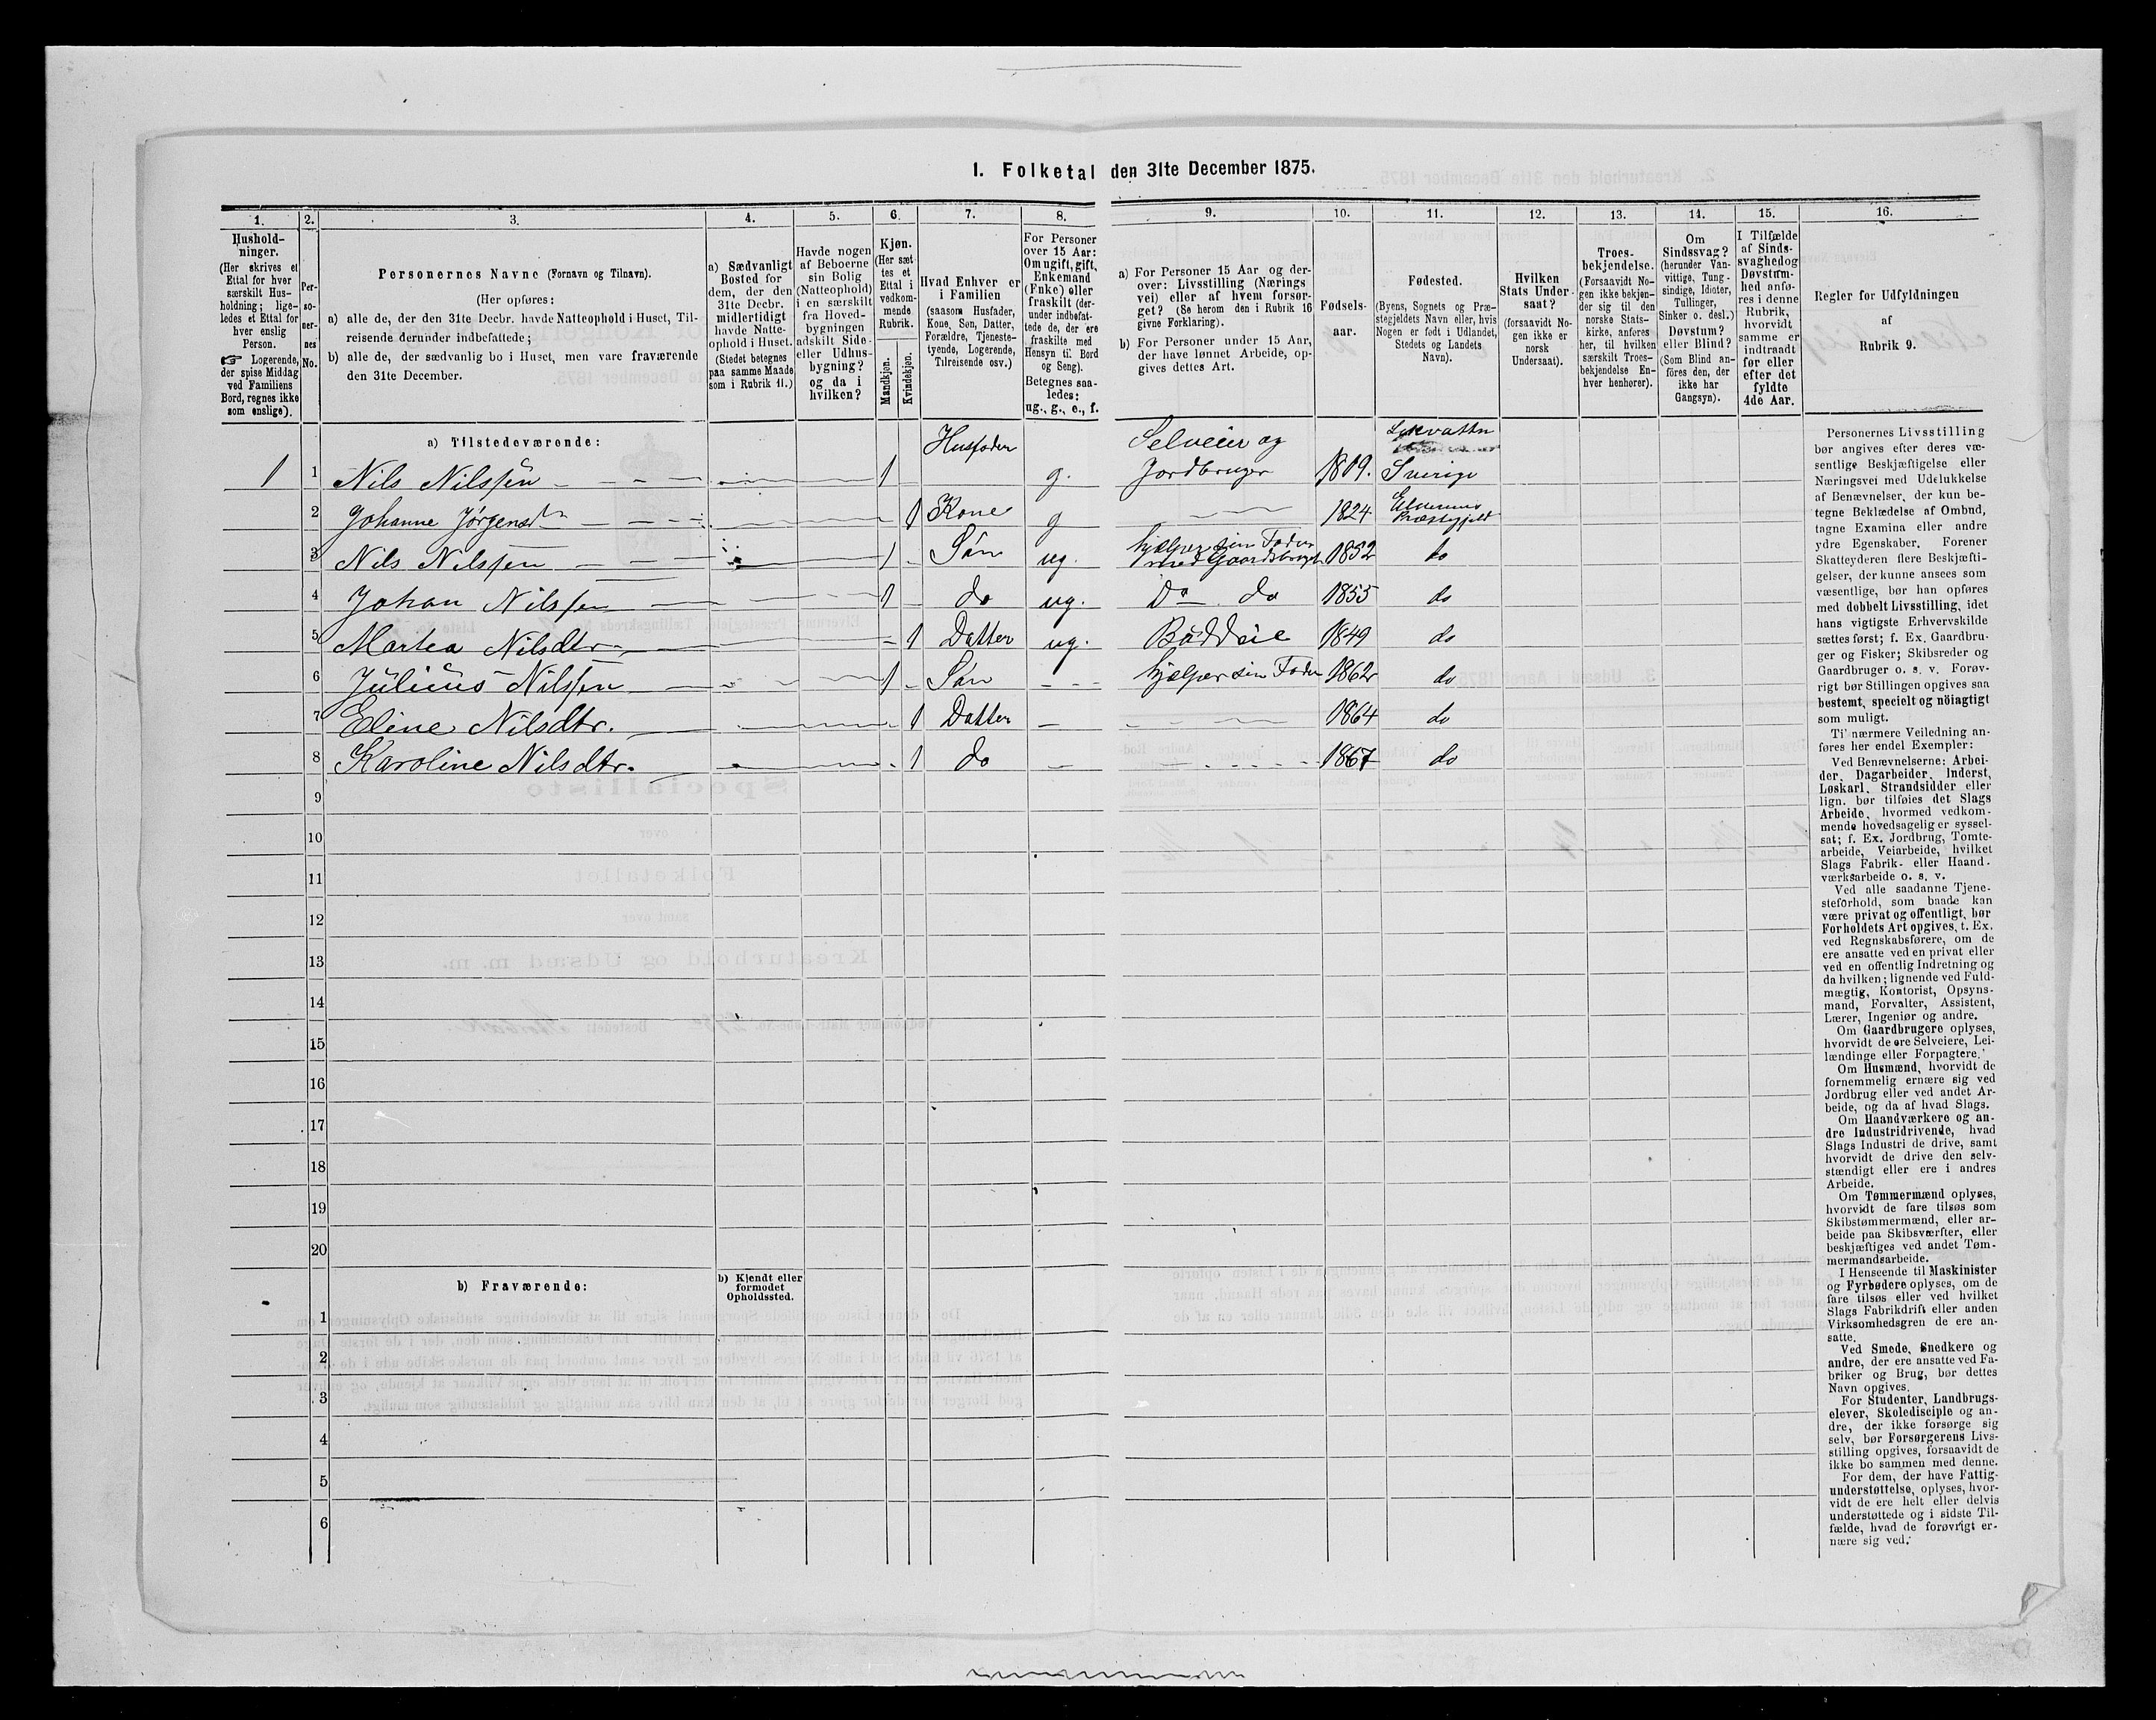 1. Folketal den 31te December 1875.
1. 2. 3. 4. 5. 6. 7. 8. 9. 10. 11. 12. 13. 14. 15. 16.
Hushold-
ninger.
(Her skrives et
Ettal for hver
særskilt Hus-
holdning; lige-
ledes et Ettal for
hver enslig
Person.
☞ Logerende,
der spise Middag
ved Familiens
Bord, regnes ikke
som enslige).
Per-
so-
ner-
nes
No.
Personernes Navne (Fornavn og Tilnavn).
(Her opføres:
a) alle de, der den 31te Decbr. havde Natteophold i Huset, Til-
reisende derunder indbefattede;
b) alle de, der sædvanlig bo i Huset, men vare fraværende
den 31te December.
a) Sædvanligt
Bosted for
dem, der den
31te Decbr.
midlertidigt
havde Natte-
ophold i Huset.
(Stedet betegnes
paa samme Maade
som i Rubrik 11.)
Havde nogen
af Beboerne
sin Bolig
(Natteophold)
i en særskilt
fra Hoved-
bygningen
adskilt Side-
eller Udhus-
bygning?
og da i
hvilken?
Kjøn.
(Her sæt-
tes et
Ettal i
vedkom-
mende
Rubrik.
Mandkjøn.
Kvindekjøn.
Hvad Enhver er
i Familien
(saasom Husfader,
Kone, Søn, Datter,
Forældre, Tjeneste-
tyende, Logerende,
Tilreisende osv.)
For Personer
over 15 Aar:
Om ugift, gift,
Enkemand
(Enke) eller
fraskilt (der-
under indbefat-
tede de, der ere
fraskilte med
Hensyn til Bord
og Seng).
Betegnes saa-
ledes:
ug., g., e., f.
a) For Personer 15 Aar og der-
over: Livsstilling (Nærings-
vei) eller af hvem forsør-
get? (Se herom den i Rubrik 16
givne Forklaring).
b) For Personer under 15 Aar,
der have lønnet Arbeide, op-
gives dettes Art.
Fødsels-
aar.
Fødested.
(Byens, Sognets og Præ-
stegjeldets Navn eller, hvis
Nogen er født i Udlandet,
Stedets og Landets
Navn).
Hvilken
Stats Under-
saat?
(forsaavidt No-
gen ikke er
norsk
Undersaat).
Troes-
bekjendelse.
(Forsaavidt No-
gen ikke bekjen-
der sig til den
norske Stats-
kirke, anføres
her, til hvilken
særskilt Troes-
bekjendelse En-
hver henhører).
Om
Sindssvag?
(herunder Van-
vittige, Tung-
sindige, Idioter,
Tullinger,
Sinker o. desl.)
Døvstum?
eller Blind?
(Som Blind an-
føres den, der
ikke har
Gangsyn).
I Tilfælde
af Sinds-
svaghed og
Døvstum-
hed anfø-
res i denne
Rubrik,
hvorvidt
samme er
indtraadt
før eller
efter det
fyldte
4de Aar.
Regler for Udfyldningen
af
Rubrik 9.
a) Tilstedeværende:
1 1 Nils Nilssen 1 Husfader g. Selveier og Jordbruger 1809. Sverige
2 Johanne Jørgensdtr 1 Kone g 1824 Elverums Præstegjeld
3 Nils Nilssen 1 Søn ug. hjælper sin Fader med Gaardsbruget 1852 do
4 Johan Nilssen 1 do ug. Do do 1855 do
5 Martea Nilsdtr 1 Datter ug. Buddeie 1849 do
6 Julius Nilssen 1 Søn hjælper sin Fader 1862 do
7 Eline Nilsdtr. 1 Datter 1864 do
8 Karoline Nilsdtr. 1 do 1867 do
9
10
11
12
13
14
15
16
17
18
19
20
b) Fraværende:
b) Kjendt eller
formodet
Opholdssted.
1
2
3
4
5
6
Personernes Livsstilling
bør angives efter deres væ-
sentlige Beskjæftigelse eller
Næringsvei med Udelukkelse
af Benævnelser, der kun be-
tegne Beklædelse af Ombud,
tagne Examina eller andre
ydre Egenskaber. Forener
Skatteyderen flere Beskjæfti-
gelser, der kunne ansees som
væsentlige, bør han opføres
med dobbelt Livsstilling, idet
hans vigtigste Erhvervskilde
sættes først; f. Ex. Gaardbru-
ger og Fisker; Skibsreder og
Gaardbruger o. s. v. Forøv-
rigt bør Stillingen opgives saa
bestemt, specielt og nöiagtigt
som muligt.
Til nærmere Veiledning an-
føres her endel Exempler:
Ved Benævnelserne: Arbei-
der, Dagarbeider, Inderst,
Løskarl, Strandsidder eller
lign. bør tilføies det Slags
Arbeide, hvormed vedkom-
mende hovedsagelig er syssel-
sat; f. Ex. Jordbrug, Tomte-
arbeide, Veiarbeide, hvilket
Slags Fabrik- eller Haand-
værksarbeide o. s. v.
Ved alle saadanne Tjene-
steforhold, som baade kan
være privat og offentligt, bør
Forholdets Art opgives, t. Ex.
ved Regnskabsførere, om de
ere ansatte ved en privat eller
ved en offentlig Indretning og
da hvilken; lignende ved Fuld-
mægtig, Kontorist, Opsyns-
mand, Forvalter, Assistent,
Lærer, Ingeniør og andre.
Om Gaardbrugere oplyses,
hvorvidt de ere Selveiere, Lei-
lændinge eller Forpagtere.
Om Husmænd, hvorvidt de
fornemmelig ernære sig ved
Jordbrug eller ved andet Ar-
beide, og da af hvad Slags.
Om Haandværkere og an-
dre Industridrivende, hvad
Slags Industri de drive, samt
hvorvidt de drive den selv-
stændigt eller ere i andres
Arbeide.
Om Tømmermænd oplyses,
hvorvidt de fare tilsøs som
Skibstømmermænd, eller ar-
beide paa Skibsværfter, eller
beskjæftiges ved andet Tøm-
mermandsarbeide.
I Henseende til Maskinister
og Fyrbødere oplyses, om de
fare tilsøs eller ved hvilket
Slags Fabrikdrift eller anden
Virksomhedsgren de ere an-
satte.
Ved Smede, Snedkere og
andre, der ere ansatte ved Fa-
briker og Brug, bør dettes
Navn opgives.
For Studenter, Landbrugs-
elever, Skoledisciple og an-
dre, der ikke forsørge sig
selv, bør Forsørgerens Livs-
stilling opgives, forsaavidt de
ikke bo sammen med denne.
For dem, der have Fattig-
understøttelse, oplyses, hvor-
vidt de ere helt eller delvis
understøttede og i sidste Til-
fælde, hvad de forøvrigt er-
nære sig ved.